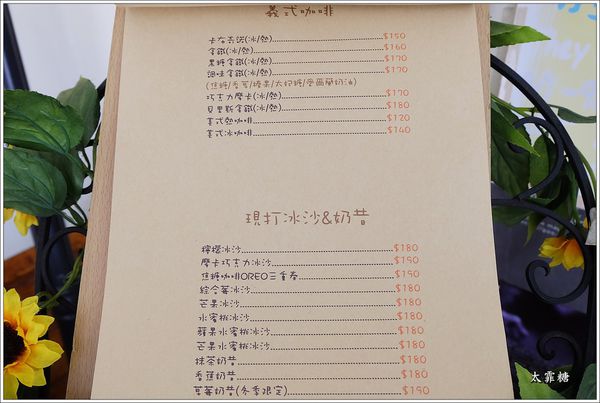 義式咖啡
卡布奇諾(冰/熱)$150
拿鐵(冰/熱)$160
黑糖拿鐵(冰/熱)$170
調味拿鐵(冰/熱)$170
(焦糖/香草/榛果/太妃糖/愛爾蘭奶油)
巧克力摩卡(冰/熱)$170
貝里斯拿鐵(冰/熱)$180
美式熱咖啡$120
美式冰咖啡$140
現打冰沙&奶昔
檸檬冰沙$180
摩卡巧克力冰沙$190
焦糖咖啡OREO三重奏$190
綜合莓冰沙$180
芒果冰沙$180
水蜜桃冰沙$180
蘋果水蜜桃冰沙$180
芒果水蜜桃冰沙$180
抹茶奶昔$180
香蕉奶昔$180
草莓奶昔(冬季限定)$190
太霏糖